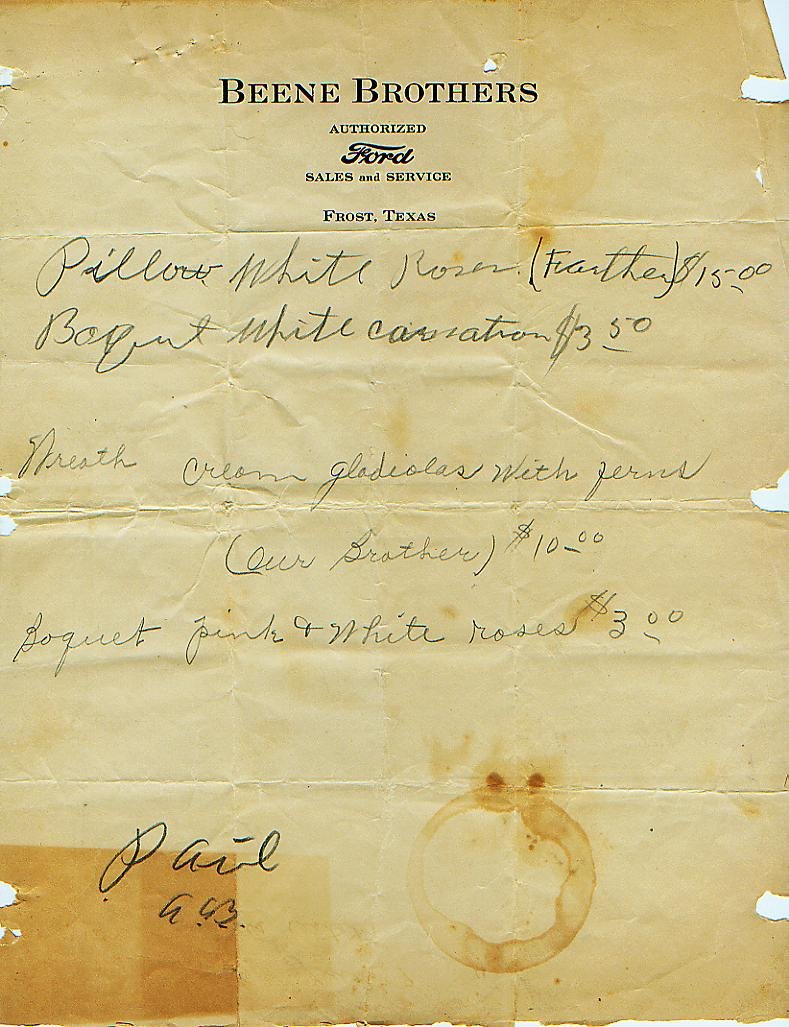 BEENE BROTHERS
AUTHORIZED
Ford
SALES and SERVICE
FROST, TEXAS
Pillow White Roses (Farther) $15.00
Boquet White carnation $3.50
Wreath cream gladiolas With ferns
(Our Brother) $10.00
Boquet pink & White roses $3.00
Paid